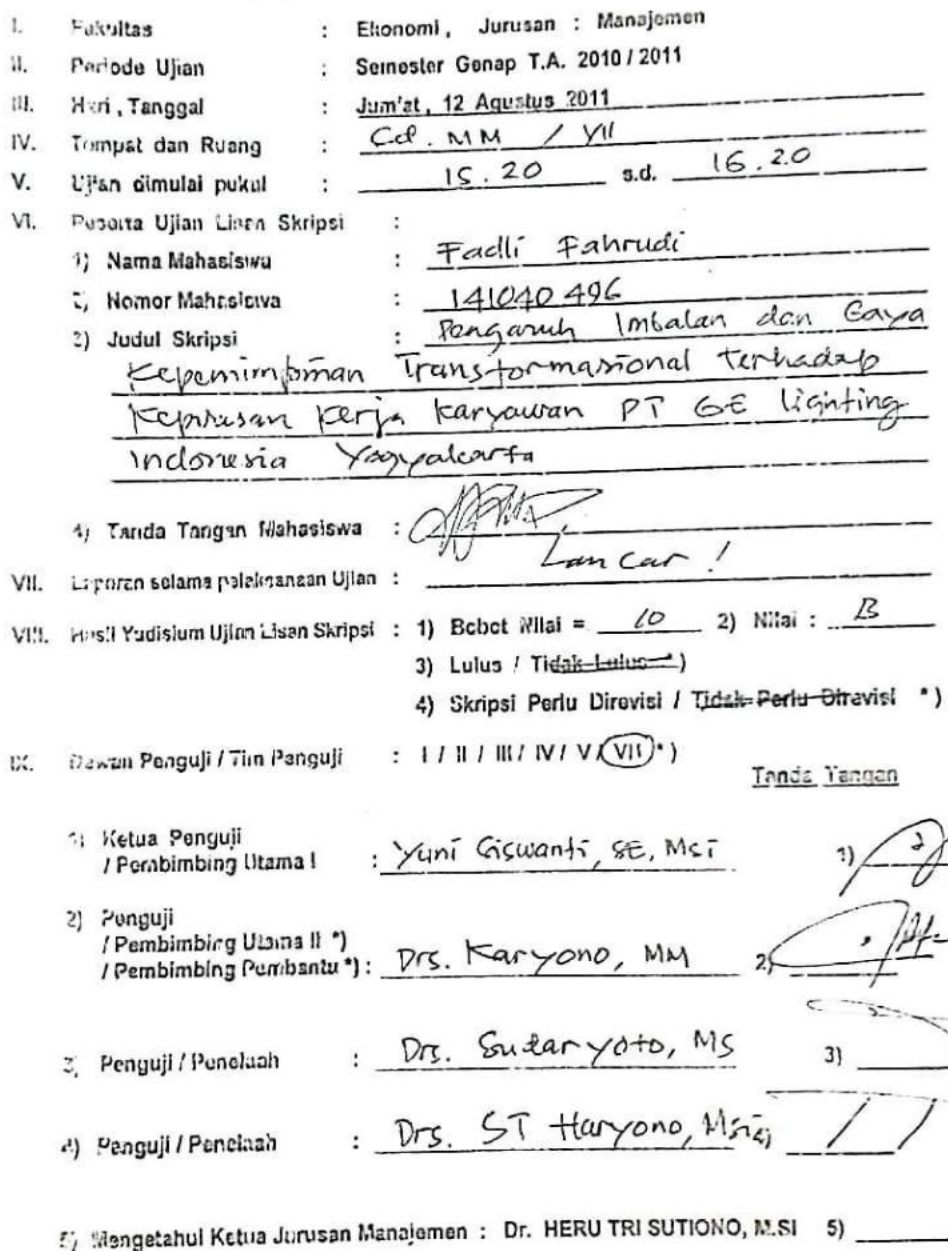 I. Fakultas : Ekonomi, Jurusan : Manajemen
II. Periode Ujian : Semester Genap T.A. 2010 / 2011
III. Hari, Tanggal : Jum'at, 12 Agustus 2011
IV. Tempat dan Ruang : Gd. MM / VII
V. Ujian dimulai pukul : 15.20 s.d. 16.20
VI. Peserta Ujian Lisan Skripsi :
1) Nama Mahasiswa : Fadli Fahrudi
2) Nomor Mahasiswa : 141040496
3) Judul Skripsi : Pengaruh Imbalan dan Gaya
Kepemimpinan Transformasional terhadap
Kepuasan Kerja Karyawan PT GE Lighting
Indonesia Yogyakarta
4) Tanda Tangan Mahasiswa :
VII. Laporan selama pelaksanaan Ujian : Lancar !
VIII. Hasil Yudisium Ujian Lisan Skripsi : 1) Bobot Nilai = 10 2) Nilai : B
3) Lulus / Tidak Lulus *)
4) Skripsi Perlu Direvisi / Tidak Perlu Direvisi *)
IX. Dewan Penguji / Tim Penguji : I / II / III / IV / V / VII *)
Tanda Tangan
1) Ketua Penguji
/ Pembimbing Utama I : Yuni Siswanti, SE, Msi 1)
2) Penguji
/ Pembimbing Utama II *)
/ Pembimbing Pembantu *) : Drs. Karyono, MM 2)
3) Penguji / Penelaah : Drs. Sutaryoto, MS 3)
4) Penguji / Penelaah : Drs. ST Haryono, Msi 4)
5) Mengetahui Ketua Jurusan Manajemen : Dr. HERU TRI SUTIONO, M.SI 5)